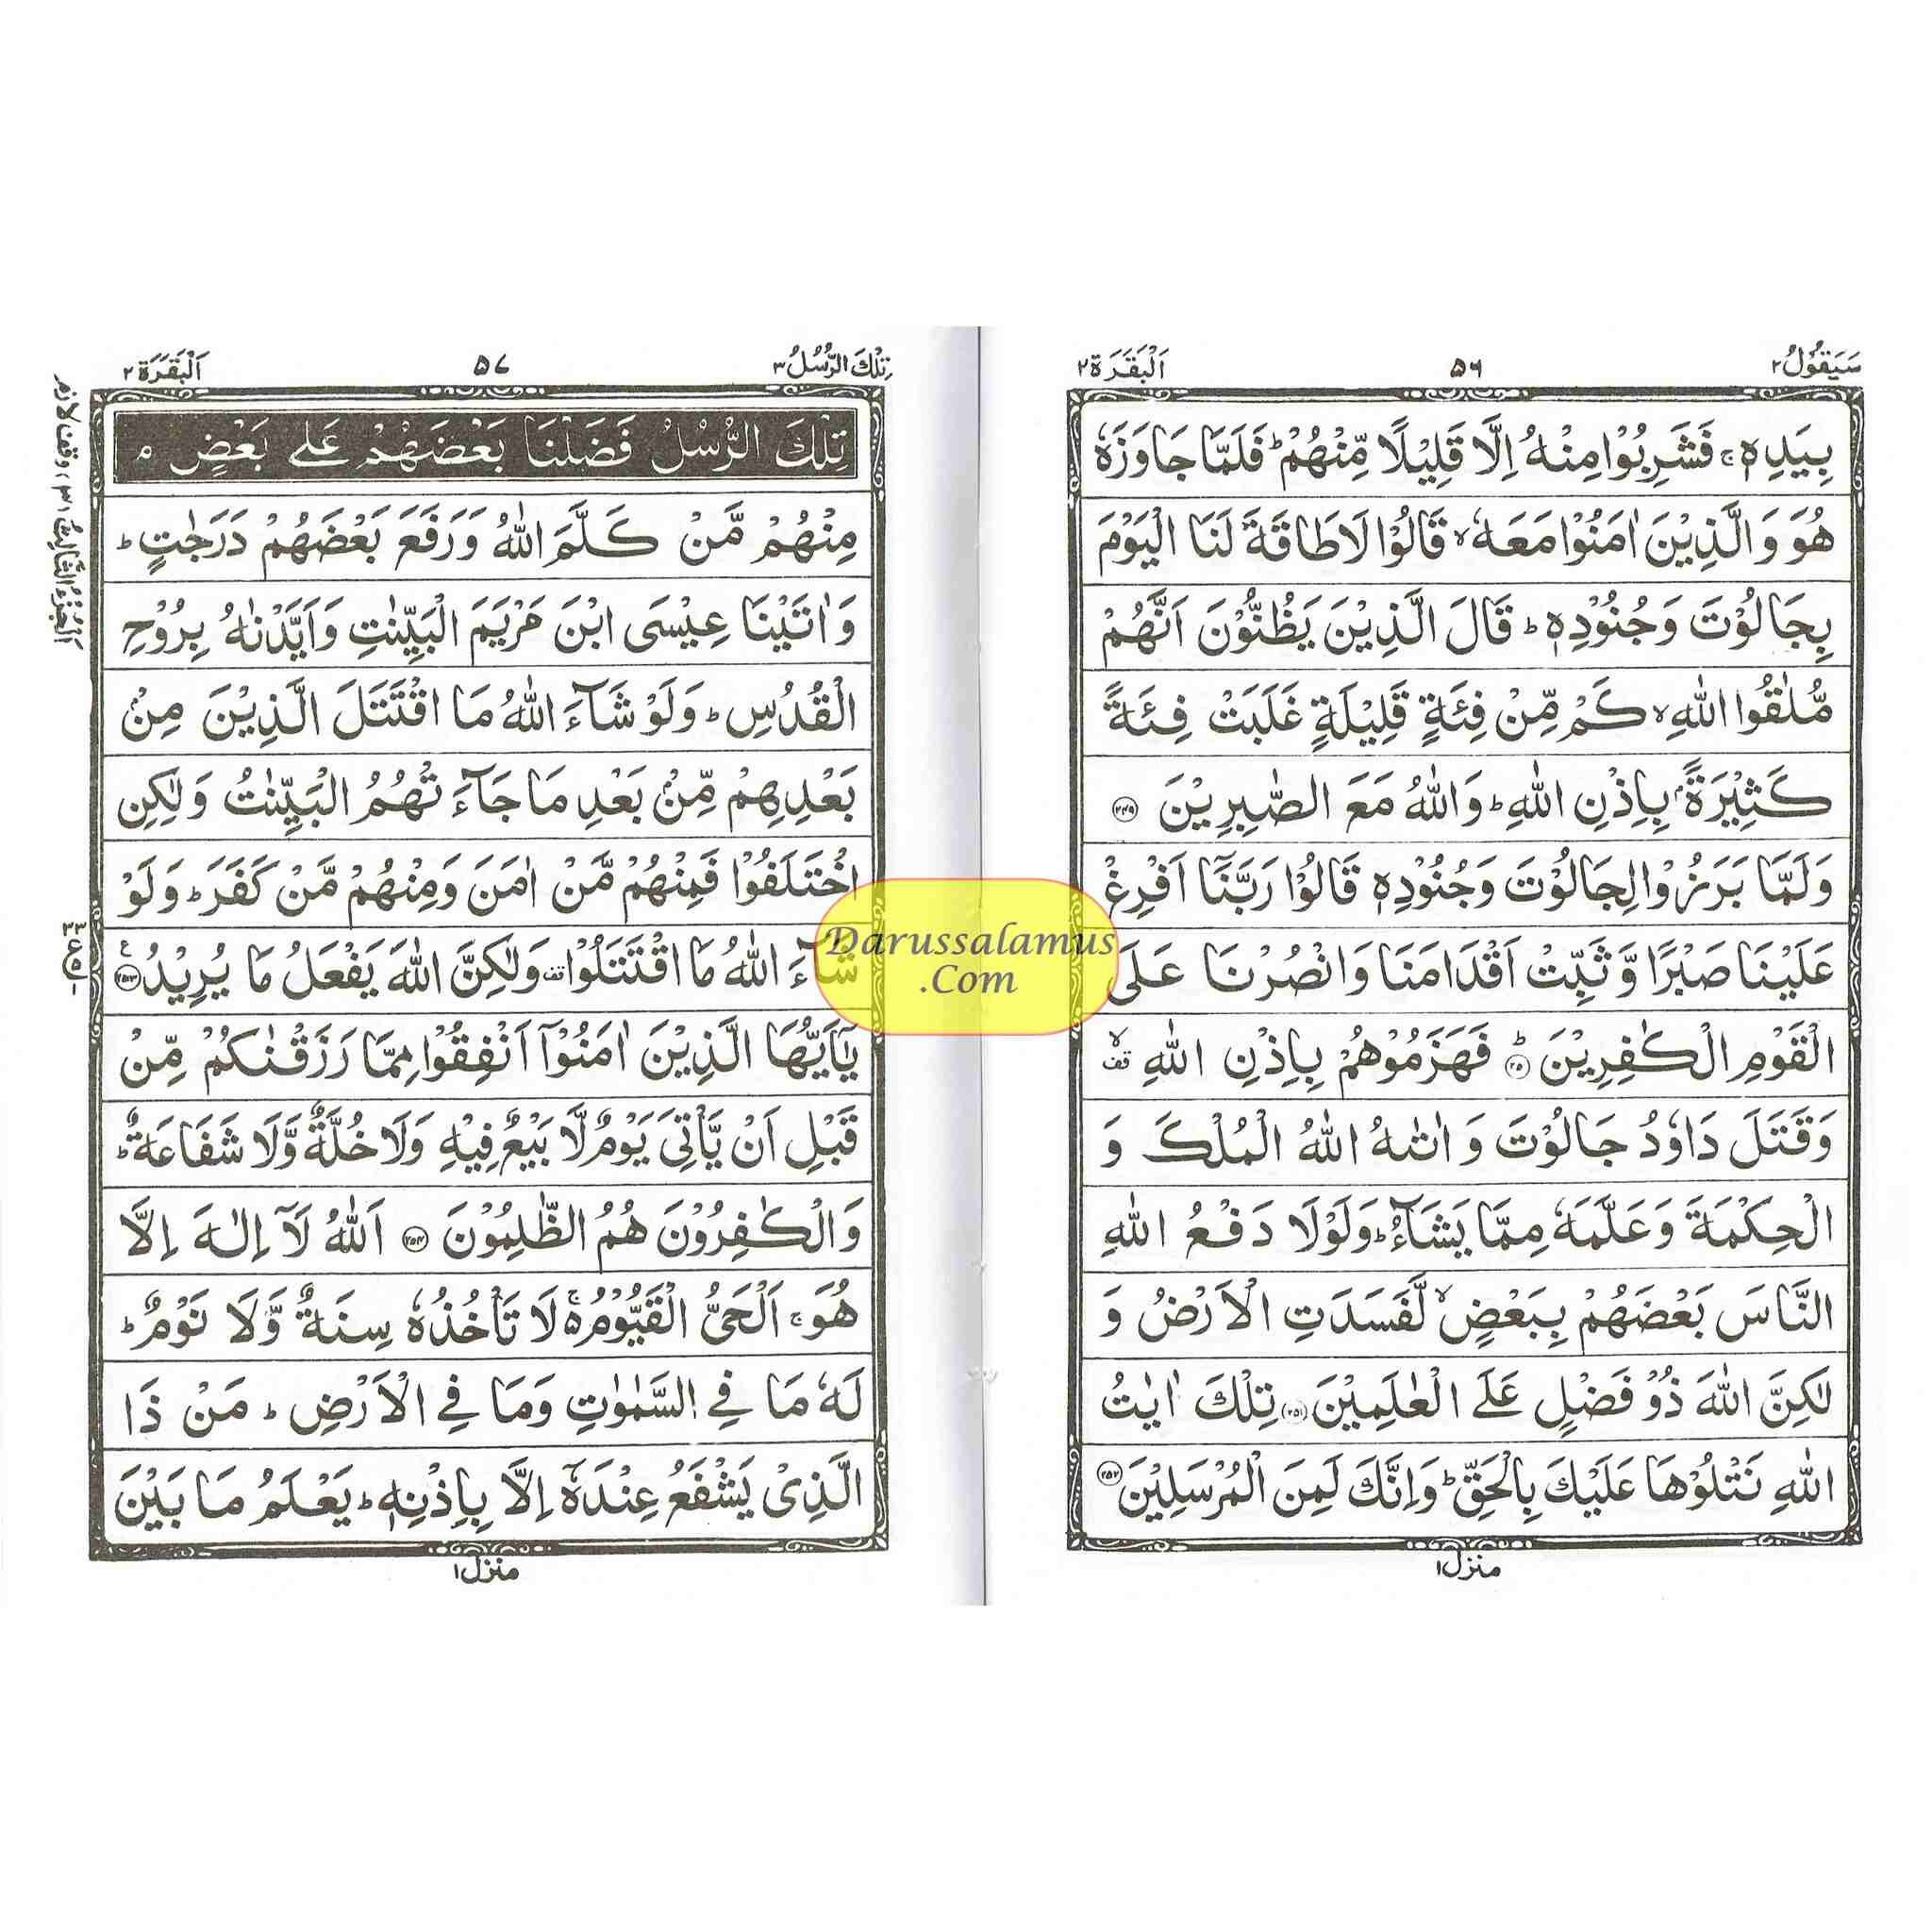 سَيَقُوْلُ ٢
٥٦
اَلْبَقَرَة ٢
بِيَدِهٖ ۚ فَشَرِبُوْا مِنْهُ اِلَّا قَلِيْلًا مِّنْهُمْ ؕ فَلَمَّا جَاوَزَهٗ
هُوَ وَالَّذِيْنَ اٰمَنُوْا مَعَهٗ ۙ قَالُوْا لَا طَاقَةَ لَنَا الْيَوْمَ
بِجَالُوْتَ وَجُنُوْدِهٖ ؕ قَالَ الَّذِيْنَ يَظُنُّوْنَ اَنَّهُمْ
مُّلٰقُوا اللّٰهِ ۙ كَمْ مِّنْ فِئَةٍ قَلِيْلَةٍ غَلَبَتْ فِئَةً
كَثِيْرَةًۢ بِاِذْنِ اللّٰهِ ؕ وَاللّٰهُ مَعَ الصّٰبِرِيْنَ ٢٤٩
وَلَمَّا بَرَزُوْا لِجَالُوْتَ وَجُنُوْدِهٖ قَالُوْا رَبَّنَاۤ اَفْرِغْ
عَلَيْنَا صَبْرًا وَّثَبِّتْ اَقْدَامَنَا وَانْصُرْنَا عَلَى
الْقَوْمِ الْكٰفِرِيْنَ ؕ ٢٥٠ فَهَزَمُوْهُمْ بِاِذْنِ اللّٰهِ ۙ قف
وَقَتَلَ دَاوٗدُ جَالُوْتَ وَاٰتٰىهُ اللّٰهُ الْمُلْكَ وَ
الْحِكْمَةَ وَعَلَّمَهٗ مِمَّا يَشَآءُ ؕ وَلَوْلَا دَفْعُ اللّٰهِ
النَّاسَ بَعْضَهُمْ بِبَعْضٍ ۙ لَّفَسَدَتِ الْاَرْضُ وَ
لٰكِنَّ اللّٰهَ ذُوْ فَضْلٍ عَلَى الْعٰلَمِيْنَ ٢٥١ تِلْكَ اٰيٰتُ
اللّٰهِ نَتْلُوْهَا عَلَيْكَ بِالْحَقِّ ؕ وَاِنَّكَ لَمِنَ الْمُرْسَلِيْنَ ٢٥٢
منزل ١
تِلْكَ الرُّسُلُ ٣
٥٧
اَلْبَقَرَة ٢
تِلْكَ الرُّسُلُ فَضَّلْنَا بَعْضَهُمْ عَلٰى بَعْضٍ ۘ
مِنْهُمْ مَّنْ كَلَّمَ اللّٰهُ وَرَفَعَ بَعْضَهُمْ دَرَجٰتٍ ؕ
وَاٰتَيْنَا عِيْسَى ابْنَ مَرْيَمَ الْبَيِّنٰتِ وَاَيَّدْنٰهُ بِرُوْحِ
الْقُدُسِ ؕ وَلَوْ شَآءَ اللّٰهُ مَا اقْتَتَلَ الَّذِيْنَ مِنْۢ
بَعْدِهِمْ مِّنْۢ بَعْدِ مَا جَآءَتْهُمُ الْبَيِّنٰتُ وَلٰكِنِ
اخْتَلَفُوْا فَمِنْهُمْ مَّنْ اٰمَنَ وَمِنْهُمْ مَّنْ كَفَرَ ؕ وَلَوْ
شَآءَ اللّٰهُ مَا اقْتَتَلُوْا قف وَلٰكِنَّ اللّٰهَ يَفْعَلُ مَا يُرِيْدُ ٢٥٣ ع
يٰۤاَيُّهَا الَّذِيْنَ اٰمَنُوْۤا اَنْفِقُوْا مِمَّا رَزَقْنٰكُمْ مِّنْ
قَبْلِ اَنْ يَّاْتِيَ يَوْمٌ لَّا بَيْعٌ فِيْهِ وَلَا خُلَّةٌ وَّلَا شَفَاعَةٌ ؕ
وَالْكٰفِرُوْنَ هُمُ الظّٰلِمُوْنَ ٢٥٤ اَللّٰهُ لَاۤ اِلٰهَ اِلَّا
هُوَ ۚ اَلْحَىُّ الْقَيُّوْمُ ۚ لَا تَاْخُذُهٗ سِنَةٌ وَّلَا نَوْمٌ ؕ
لَهٗ مَا فِي السَّمٰوٰتِ وَمَا فِي الْاَرْضِ ؕ مَنْ ذَا
الَّذِيْ يَشْفَعُ عِنْدَهٗۤ اِلَّا بِاِذْنِهٖ ؕ يَعْلَمُ مَا بَيْنَ
منزل ١
اَلْجُزْءُ الثَّالِثُ ٣ وقف لازم
Darussalamus
.Com